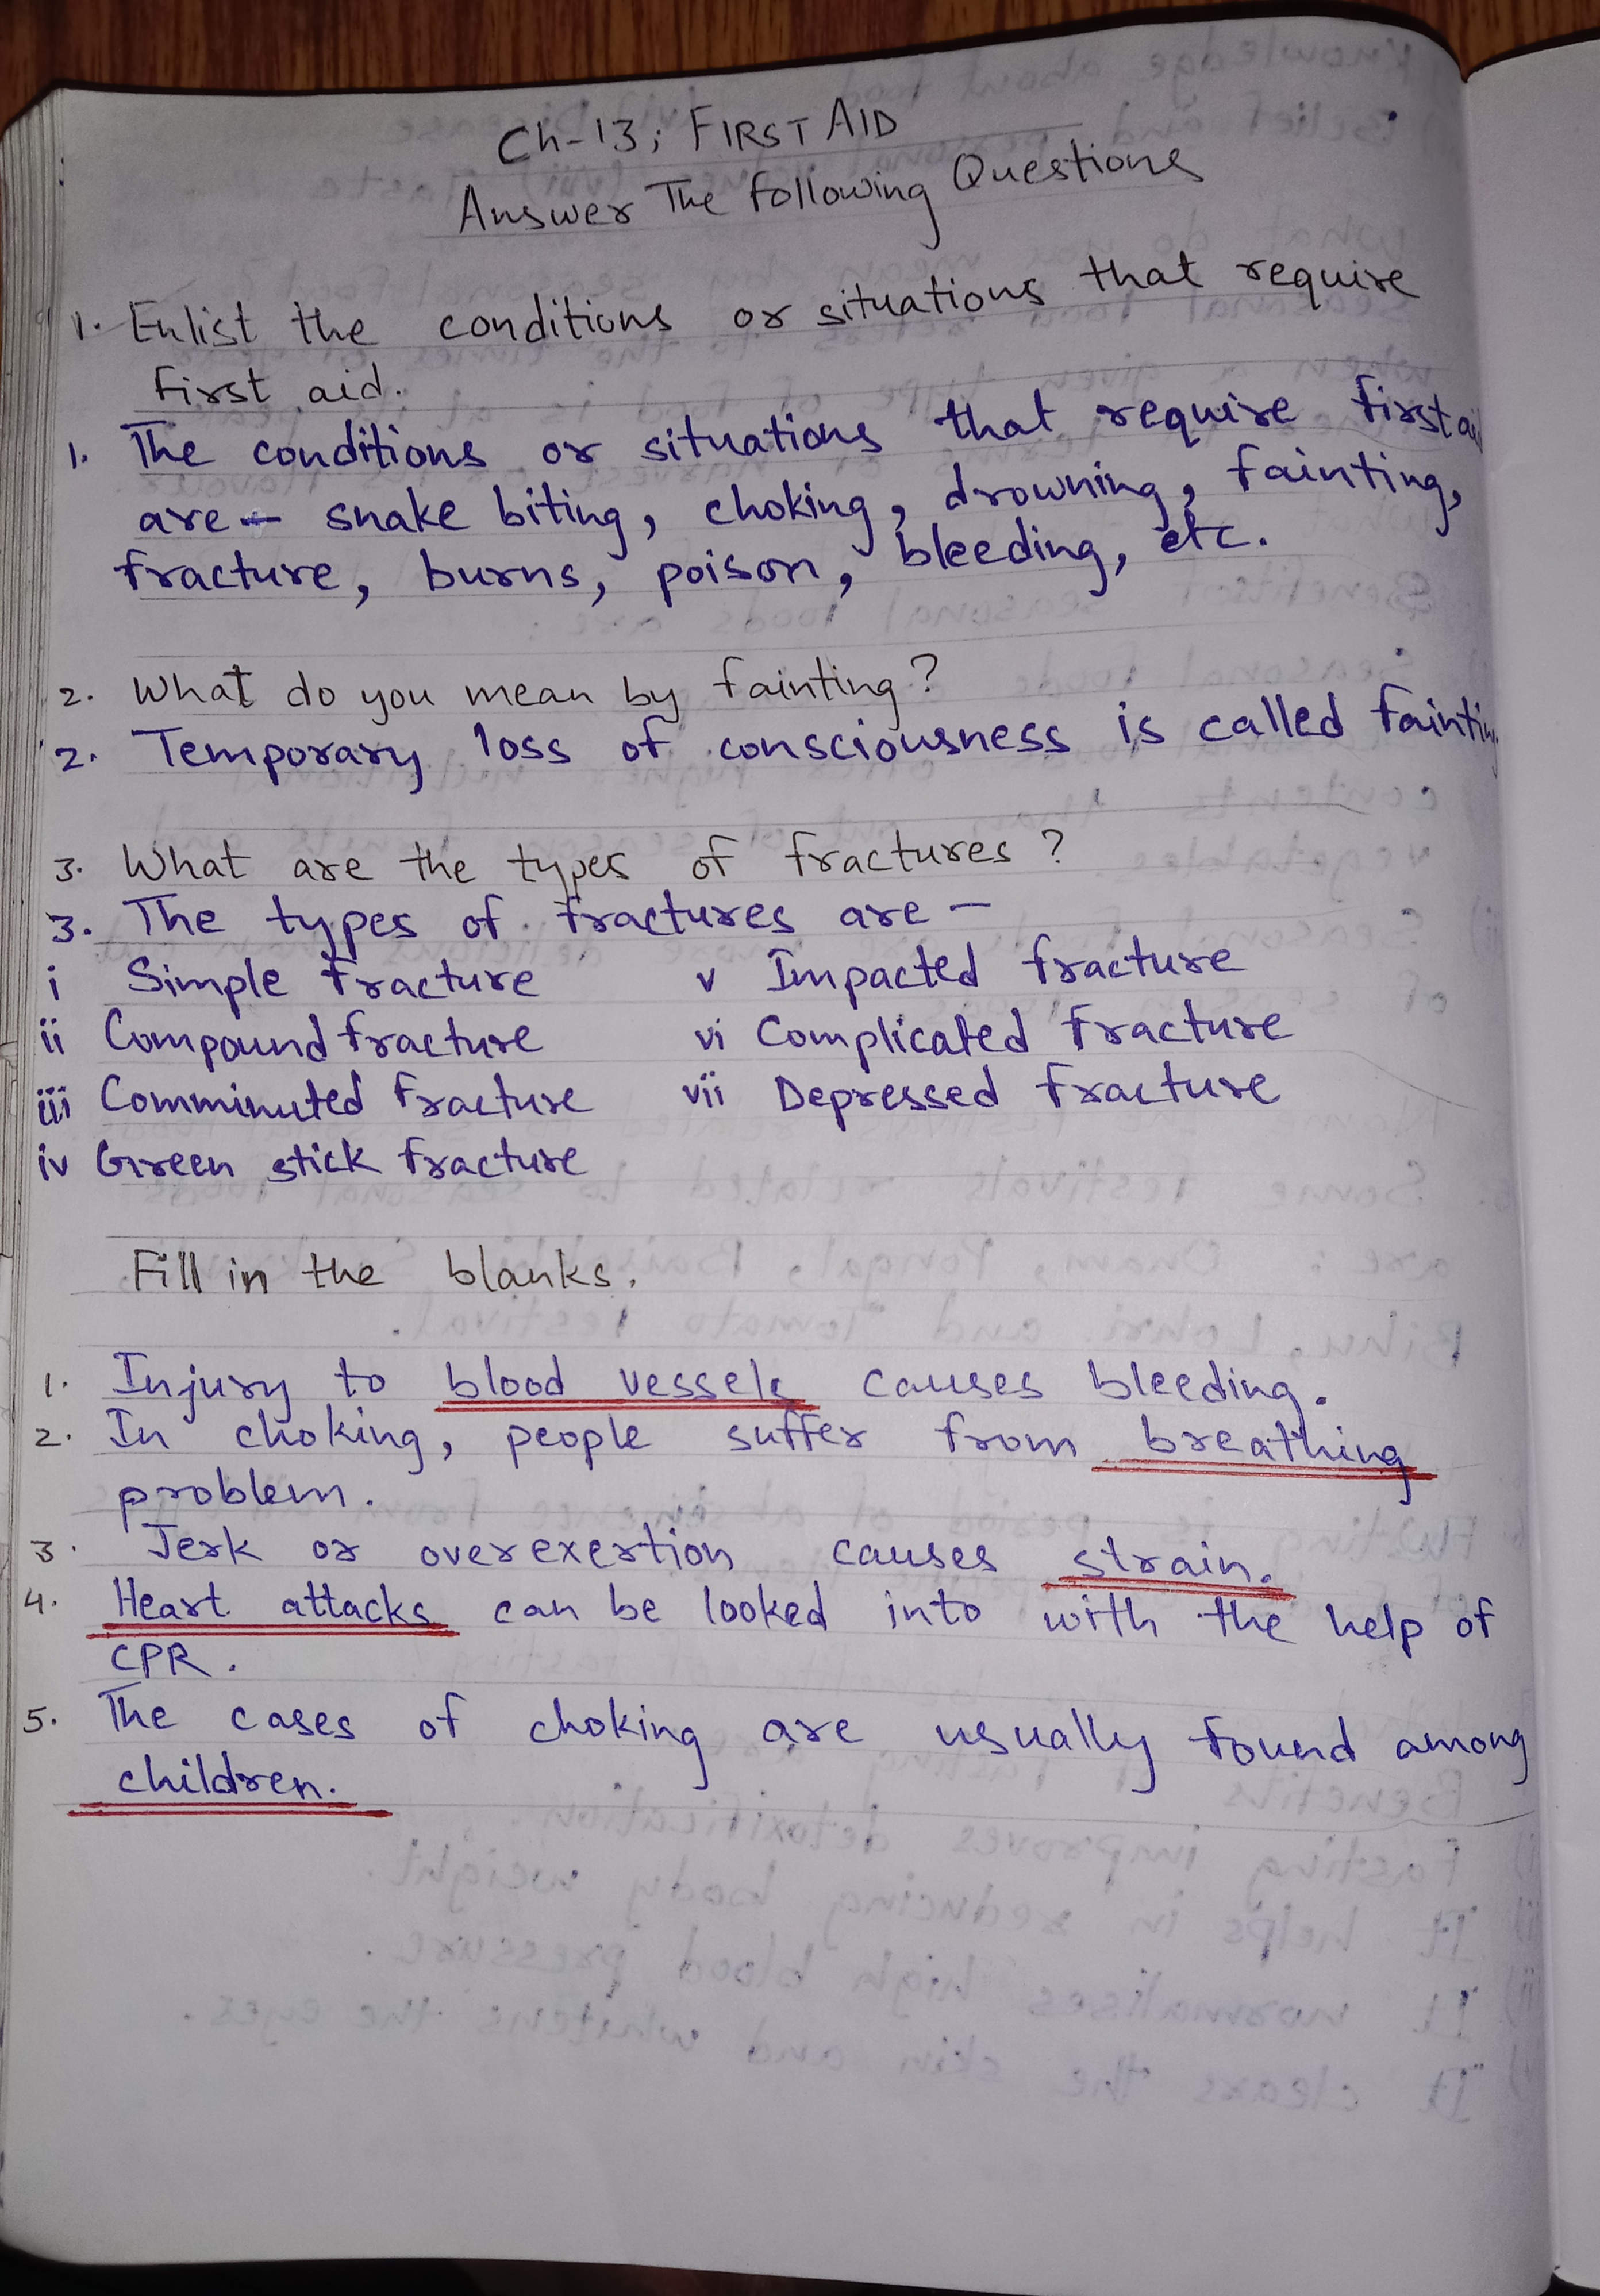 Ch-13; FIRST AID
Answer The Following Questions
1. Enlist the conditions or situations that require
First aid.
1. The conditions or situations that require first ai
are - snake biting, choking, drowning, fainting,
fracture, burns, poison, bleeding, etc.
2. What do you mean by fainting?
2. Temporary loss of consciousness is called faintin
3. What are the types of fractures?
3. The types of fractures are -
i Simple fracture v Impacted fracture
ii Compound fracture vi Complicated fracture
iii Comminuted fracture vii Depressed fracture
iv Green stick fracture
Fill in the blanks.
1. Injury to blood vessels causes bleeding.
2. In choking, people suffer from breathing
problem.
3. Jerk or overexertion causes strain.
4. Heart attacks can be looked into with the help of
CPR.
5. The cases of choking are usually found among
children.